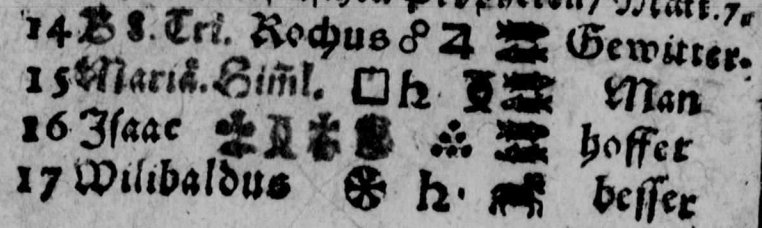 14 B 8. Tri. Rochus ☍ ♃ ♓ Gewitter.
15 Mariä. Him̃l. □ ♄ ♓ Man
16 Isaac ♓ hoffet
17 Wilibaldus ♄. besser